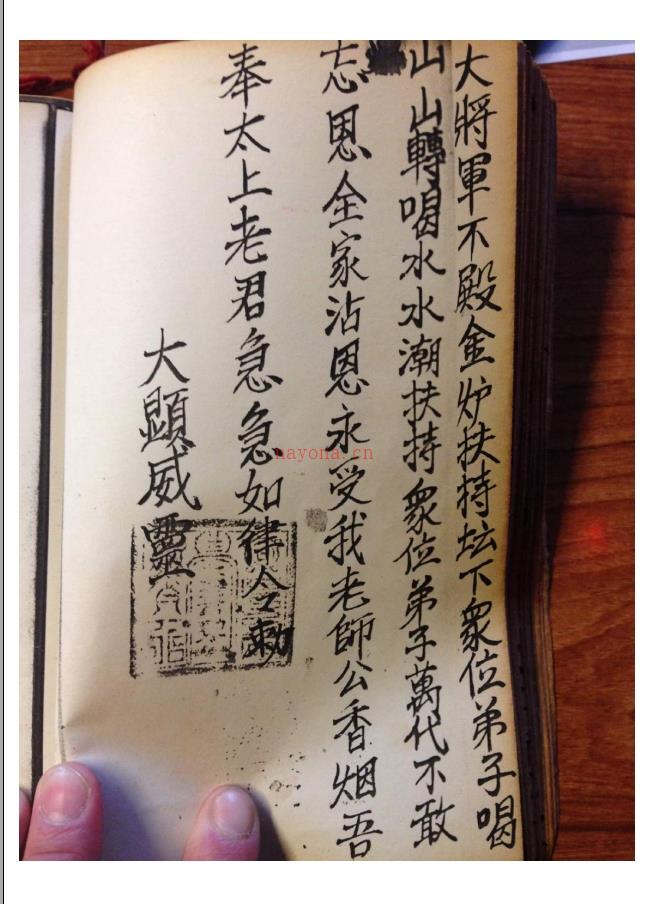 大將軍不殿金炉扶持坛下衆位弟子喝
山山轉喝水水潮扶持衆位弟子萬代不敢
忘恩全家沾恩永受我老師公香烟吾
奉太上老君急急如律令勅
大顕威靈
nayona.cn